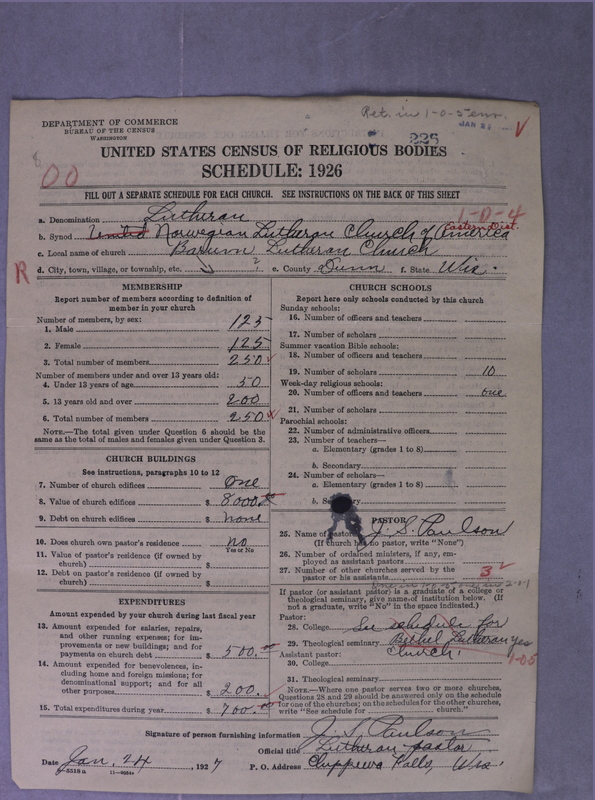 Ret. in 1-0-5 env.
JAN 31
DEPARTMENT OF COMMERCE
BUREAU OF THE CENSUS
WASHINGTON
225
UNITED STATES CENSUS OF RELIGIOUS BODIES
SCHEDULE: 1926
00
FILL OUT A SEPARATE SCHEDULE FOR EACH CHURCH. SEE INSTRUCTIONS ON THE BACK OF THIS SHEET
1-0-4
a. Denomination Lutheran
Eastern Dist.
b. Synod United Norwegian Lutheran Church of America
c. Local name of church Barum Lutheran Church
R
d. City, town, village, or township, etc. e. County Dunn f. State Wis.
MEMBERSHIP
Report number of members according to definition of
member in your church
Number of members, by sex:
1. Male 125
2. Female 125
3. Total number of members 250
Number of members under and over 13 years old:
4. Under 13 years of age 50
5. 13 years old and over 200
6. Total number of members 250
NOTE.—The total given under Question 6 should be the
same as the total of males and females given under Question 3.
CHURCH BUILDINGS
See instructions, paragraphs 10 to 12
7. Number of church edifices One
8. Value of church edifices $ 8000.
9. Debt on church edifices $ none
10. Does church own pastor's residence? no
Yes or No
11. Value of pastor's residence (if owned by
church) $
12. Debt on pastor's residence (if owned by
church) $
EXPENDITURES
Amount expended by church during last fiscal year
13. Amount expended for salaries, repairs,
and other running expenses; for im-
provements or new buildings; and for
payments on church debt $ 500.
14. Amount expended for benevolences, in-
cluding home and foreign missions; for
denominational support; and for all
other purposes $ 200.
15. Total expenditures during year $ 700.
CHURCH SCHOOLS
Report here only schools conducted by this church
Sunday schools:
16. Number of officers and teachers
17. Number of scholars
Summer vacation Bible schools:
18. Number of officers and teachers
19. Number of scholars 10
Week-day religious schools:
20. Number of officers and teachers one
21. Number of scholars
Parochial schools:
22. Number of administrative officers
23. Number of teachers—
a. Elementary (grades 1 to 8)
b. Secondary
24. Number of scholars—
a. Elementary (grades 1 to 8)
b. Secondary
PASTOR
25. Name of pastor J. S. Paulson
(If church has no pastor, write "None")
26. Number of ordained ministers, if any, em-
ployed as assistant pastors
27. Number of other churches served by the
pastor or his assistants 3
If pastor (or assistant pastor) is a graduate of a college or
theological seminary, give name of institution below. (If
not a graduate, write "No" in the space indicated.)
Pastor:
28. College See schedule for
29. Theological seminary Bethel Lutheran yes
Assistant pastor: Church.
1-05
30. College
31. Theological seminary
NOTE.—Where one pastor serves two or more churches,
Questions 28 and 29 should be answered only on the schedule
for one of the churches; on the schedules for the other churches,
write "See schedule for church."
Signature of person furnishing information J. S. Paulson
Official title Lutheran pastor
Date Jan. 24, 1927 P. O. Address Chippewa Falls, Wis.
8-5518a 11-9554